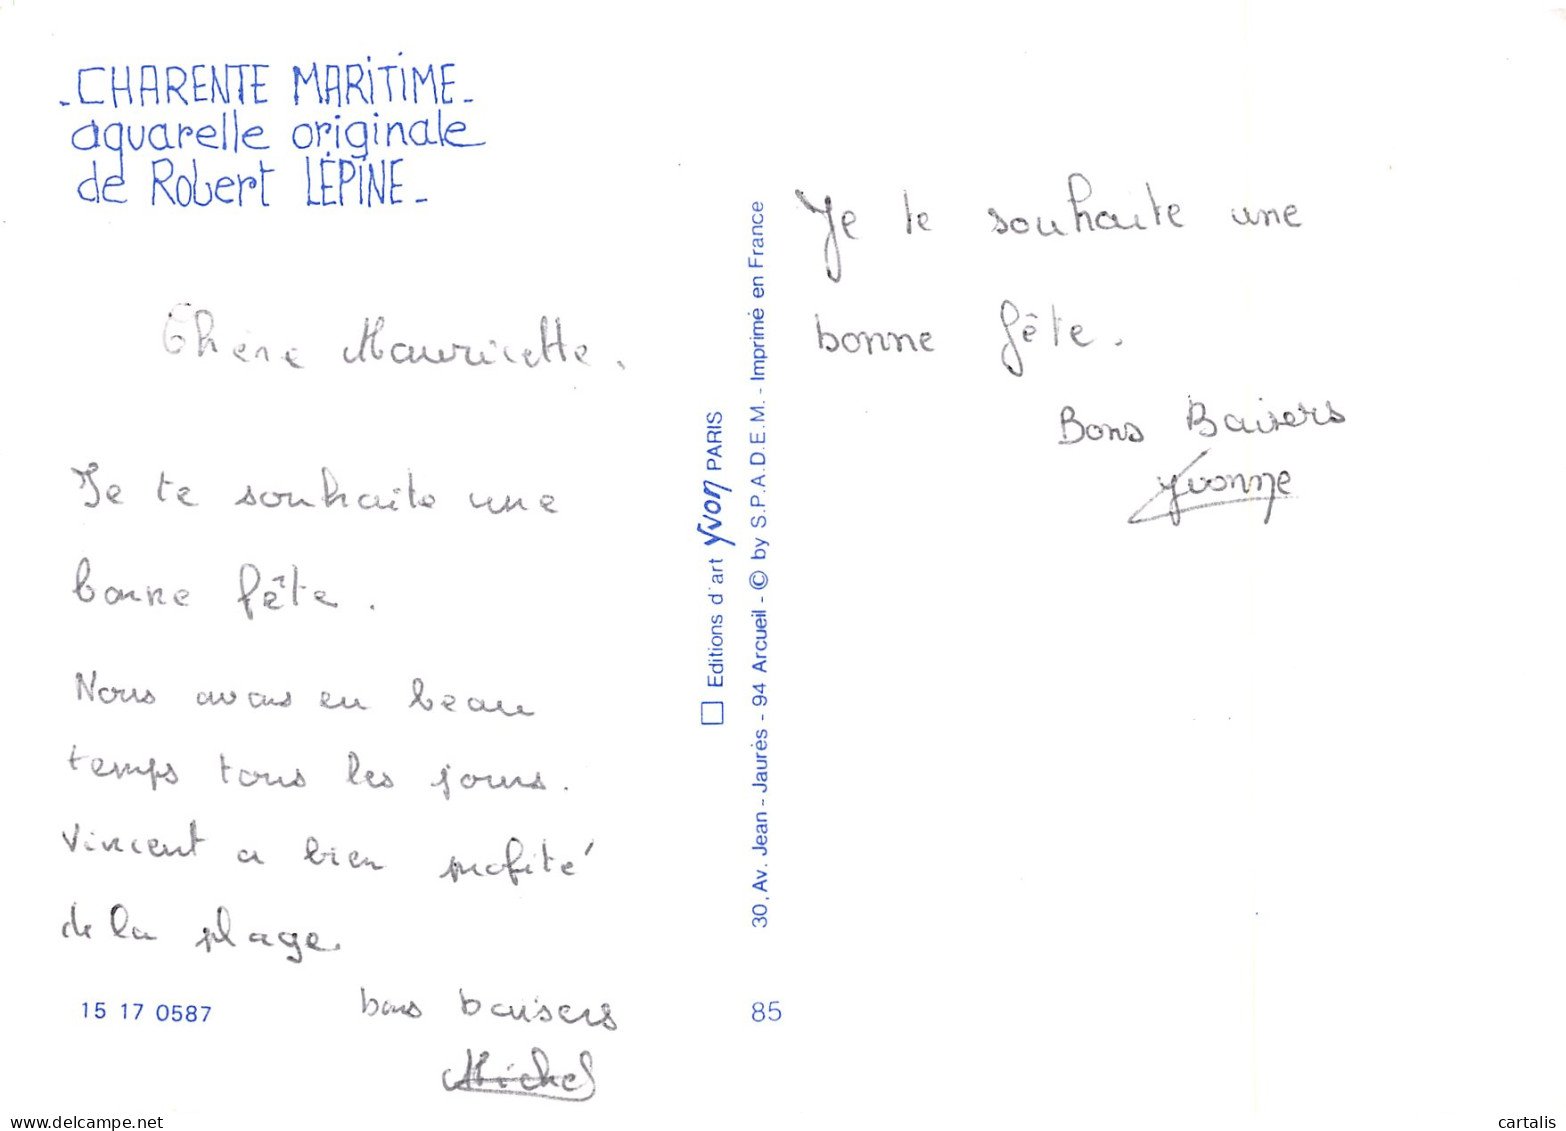 - CHARENTE MARITIME -
aquarelle originale
de Robert LÉPINE -
Chère Mauricette.
Je te souhaite une
bonne fête.
Nous avons eu beau
temps tous les jours.
Vincent a bien profité
de la plage.
bons baisers
Michel
15 17 0587
Editions d'art yvon PARIS
30, Av. Jean-Jaurès - 94 Arcueil - © by S.P.A.D.E.M. - Imprimé en France
85
Je te souhaite une
bonne fête.
Bons Baisers
Yvonne
delcampe.net
cartalis